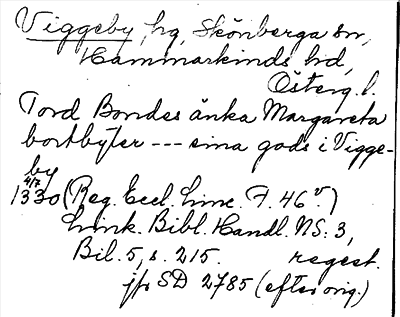 Viggeby, hg, Skönberga sn,
Hammarkinds hd,
Österg. l.
Tord Bondes änka Margareta
bortbyter --- sina gods i Vigge-
by
4/7
1330 (Reg. Eccl. Linc. F. 46 v.)
Link. Bibl. Handl. NS: 3,
Bil. 5, s. 215. regest.
jfr SD 2785 (efter orig.)